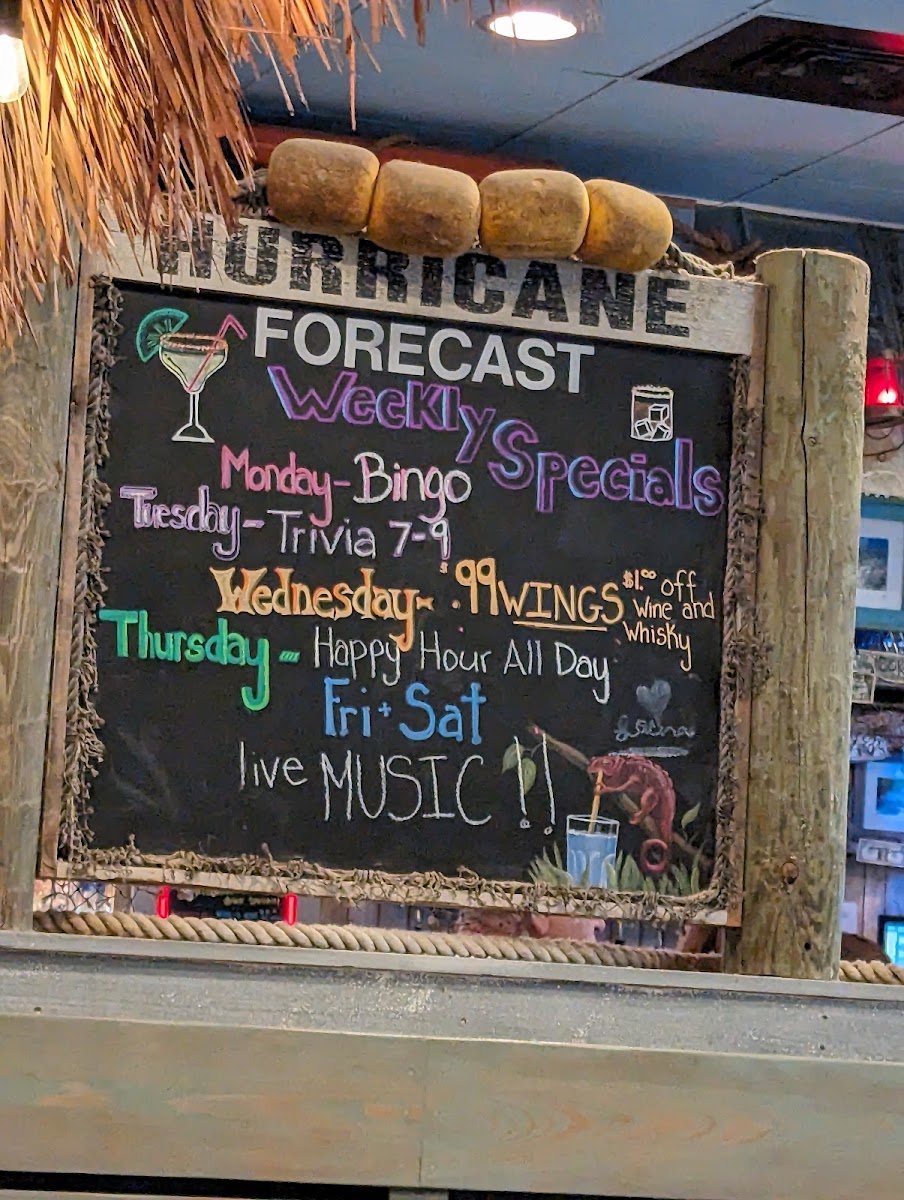 HURRICANE
FORECAST
Weekly Specials
Monday - Bingo
Tuesday - Trivia 7-9
Wednesday - $.99 WINGS $1.00 off Wine and Whisky
Thursday - Happy Hour All Day
Fri + Sat
live MUSIC !!